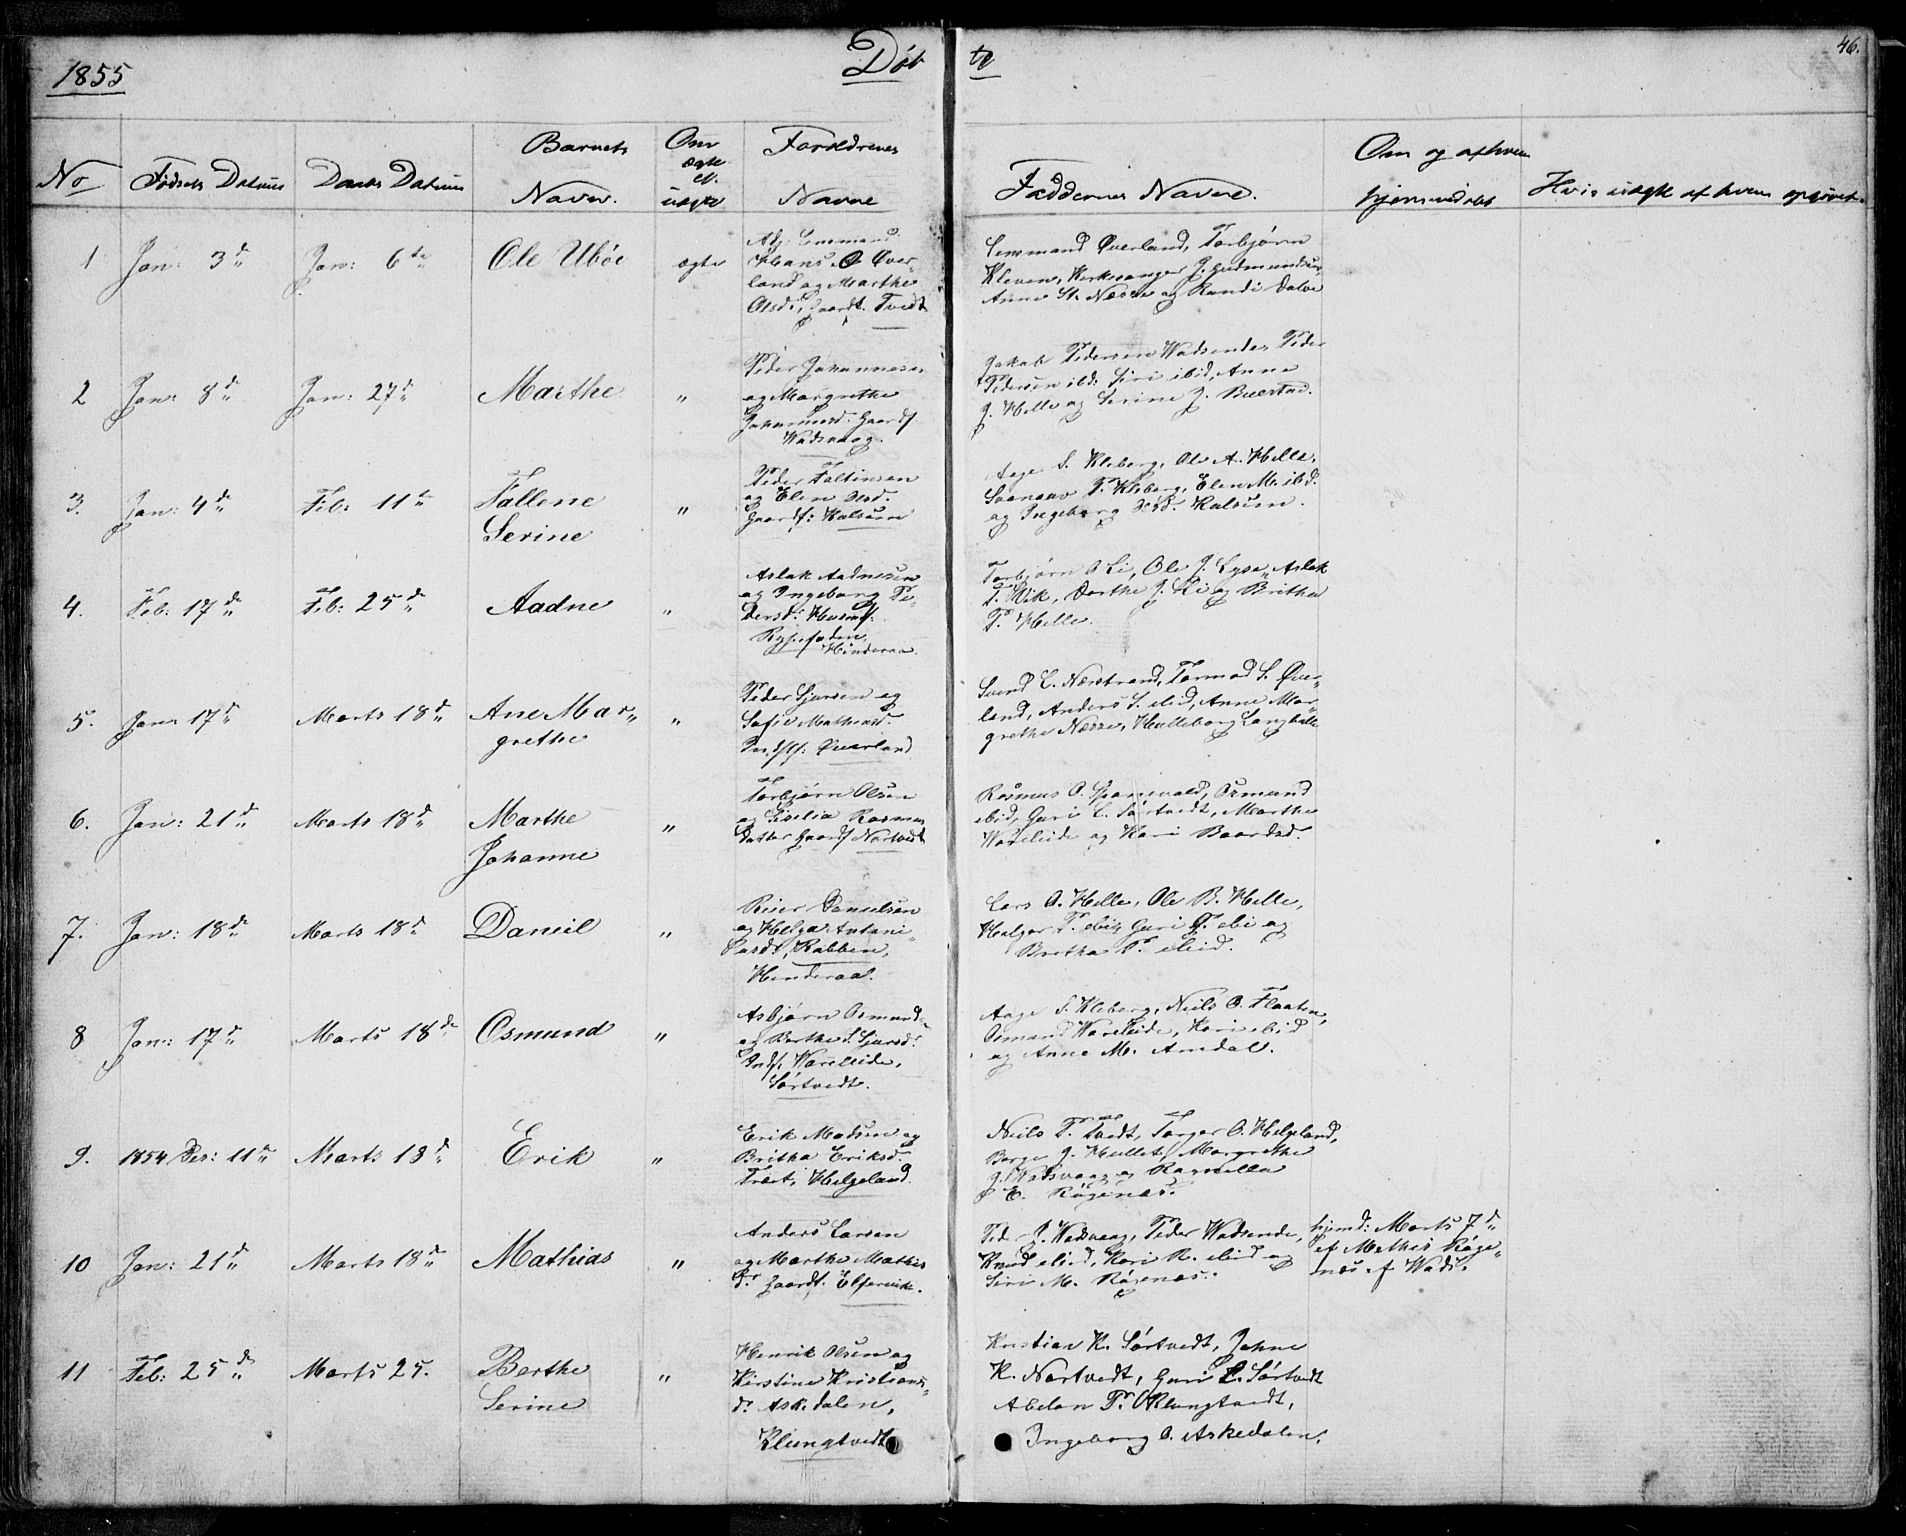 1855
Døbte
46.
No
Fødsels Datum
Daabs Datum
Barnets
Navn.
Om
ægte
el.
uægte
Forældrenes
Navne
Faddernes Navne.
Om og af hvem
hjemmedøbt
Hvis uægte af hvem opgivet.
1
Jan: 3d
Jan: 6te
Ole Ubøe
ægte
Hans O. Over-
land og Marthe
Olsd., Gaardf. Tvedt
Lemmand Øverland, Torbjørn
Kleven, Kirkesanger J. Gudmundsen,
Anne St. Næsse og Randi Dalve
2
Jan: 8d
Jan: 27d
Marthe
"
Peder Johannesen
og Margrethe
Johannesd. Gaardf.
Wadsvaag.
Jakob Pedersen Wadsende, Peder
Pedersen ibd: Siri ibid, Anne
J. Helle og Serine J. Buestad.
3.
Jan: 4de
Feb: 11te
Fallene
Serine
"
Peder Faltinsen
og Elen Olsd.
Gaardf: Kalsum
Aage S. Kleberg, Ole A. Helle,
P. Kleberg, Elen M. ibd.
og Ingeborg Olsd. Kalsum.
4.
Feb: 17de
Feb: 25de
Aadne
"
Aslak Aadnesen
og Ingeborg Pe-
dersd. Husmf.
Hinderaa.
Torbjørn O Li, Ole J. Lyse, Aslak
P. Vik, Dorthe J. Li og Britha
P. Helle.
5.
Jan: 17d
Marts 18d
Ane Mar-
grethe
"
Peder Sjursen og
Sofie Mathiasd.
Indstf: Øverland
Svend L. Nærstrand, Tormod S. Øver-
land, Anders S. ibid, Anne Mar-
grethe Næsse,
6.
Jan: 21d
Marts 18d
Marthe
Johanne
"
Torbjørn Olsen
og Siselia Rasmus
Datter Gaardf. Nortvedt
Rasmus O. Spanevald, Osmund
ibid, Guri L. Sørtvedt, Marthe
Wareleide og Kari Baardsd.
7.
Jan: 18de
Marts 18d
Daniel
"
Reier Danielsen
og Helga Antoni-
Rabben,
Hinderaa.
Lars O. Helle, Ole B. Helle,
Holger P. ibi, Guri T. ibi og
Britha P. ibid.
8
Jan: 17d
Marts 18de
Osmund
"
Asbjørn Osmunds-
og Berthe S. Sjursd.
Indf. Wareleide,
Sørtvedt.
Aage S. Kleberg, Niels O. Flaaten,
Osmund Wareleide, Kari ibid
og Anne M. Amdal.
9.
1854 Des: 11te
Marts 18d
Erik
"
Erik Madsen og
Britha Eriksd.
Træet, Helgeland.
Niels P. Tvedt, Torger O. Helgeland,
Borge J. Hullet, Margrethe
J. Wadsvaag og Ragnilla
E. Røgenæs.
10
Jan: 21d
Marts 18de
Mathias
"
Anders Larsen
og Marthe Mathis
D. Gaardf. Elfarvik.
Ped. J. Wadsvaag, Peder Wadsende,
Knud ibid, Kari K. ibid og
Siri M. Røgenæs.
hjemd: Marts 7d
af Mathis Røge-
næs
11
Feb: 25de
Marts 25.
Berthe
Serine
"
Henrik Olsen og
Kirstine Kristians-
d. Askedalen,
Klungtvedt
Kristian K. Sørtvedt, Johne
K. Nortvedt, Guri L. Sørtvedt
Abelon P. Klungtvedt,
Ingeborg O. Askedalen.